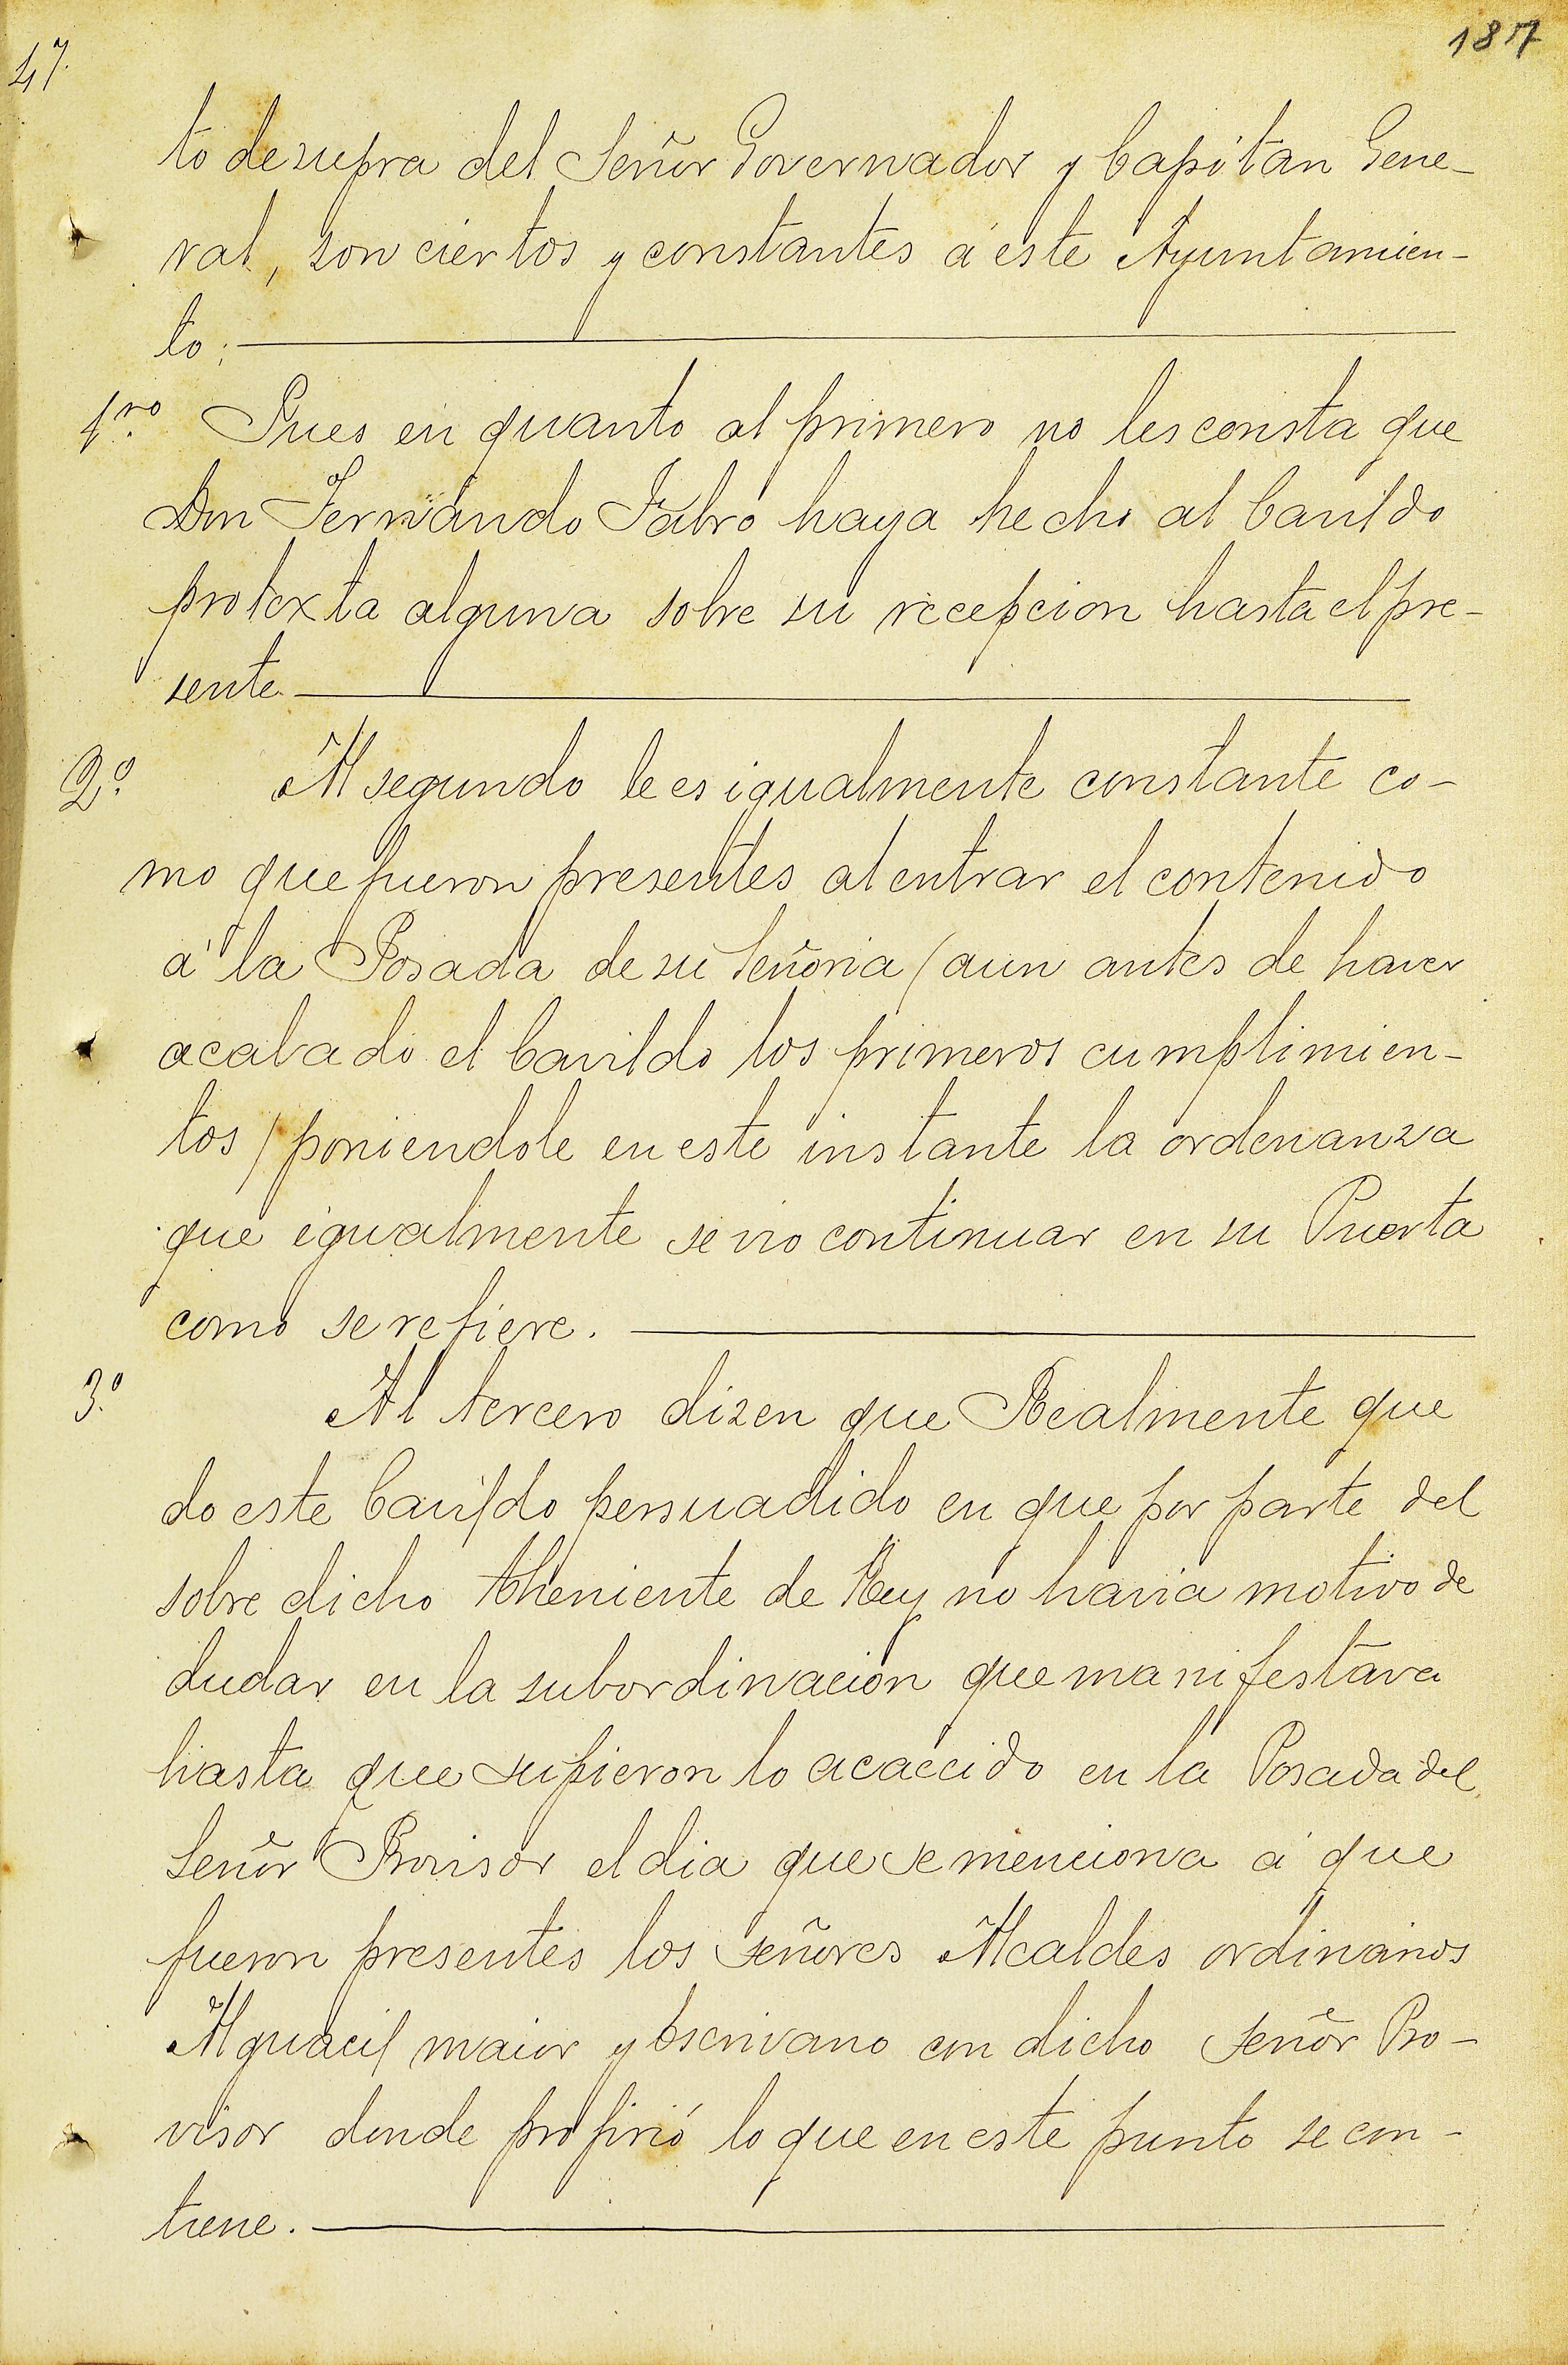 47.
187
to de supra del Señor Governador y Capitan Gene-
ral, son ciertos y constantes á este Ayuntamien-
to;
1.ro Pues en quanto al primero no les consta que
Don Fernando Fabro haya hecho al Cavildo
protexta alguna sobre su recepcion hasta el pre-
sente
2.o Al segundo le es igualmente constante co-
mo que fueron presentes al entrar el contenido
á la Posada de su Señoria (aun antes de haver
acabado el Cavildo los primeros cumplimien-
tos) poniendole en este instante la ordenanza
que igualmente se vio continuar en su Puerta
como se refiere.
3.o Al tercero dizen que Realmente que
do este Cavildo persuadido en que por parte del
sobre dicho theniente de Rey no havia motivo de
dudar en la subordinacion que manifestava
hasta que supieron lo acaecido en la Posada del
Señor Provisor el dia que se menciona á que
fueron presentes los señores Alcaldes ordinarios
Alguacil maior y Escrivano con dicho Señor Pro-
visor donde profirió lo que en este punto se con-
tiene.